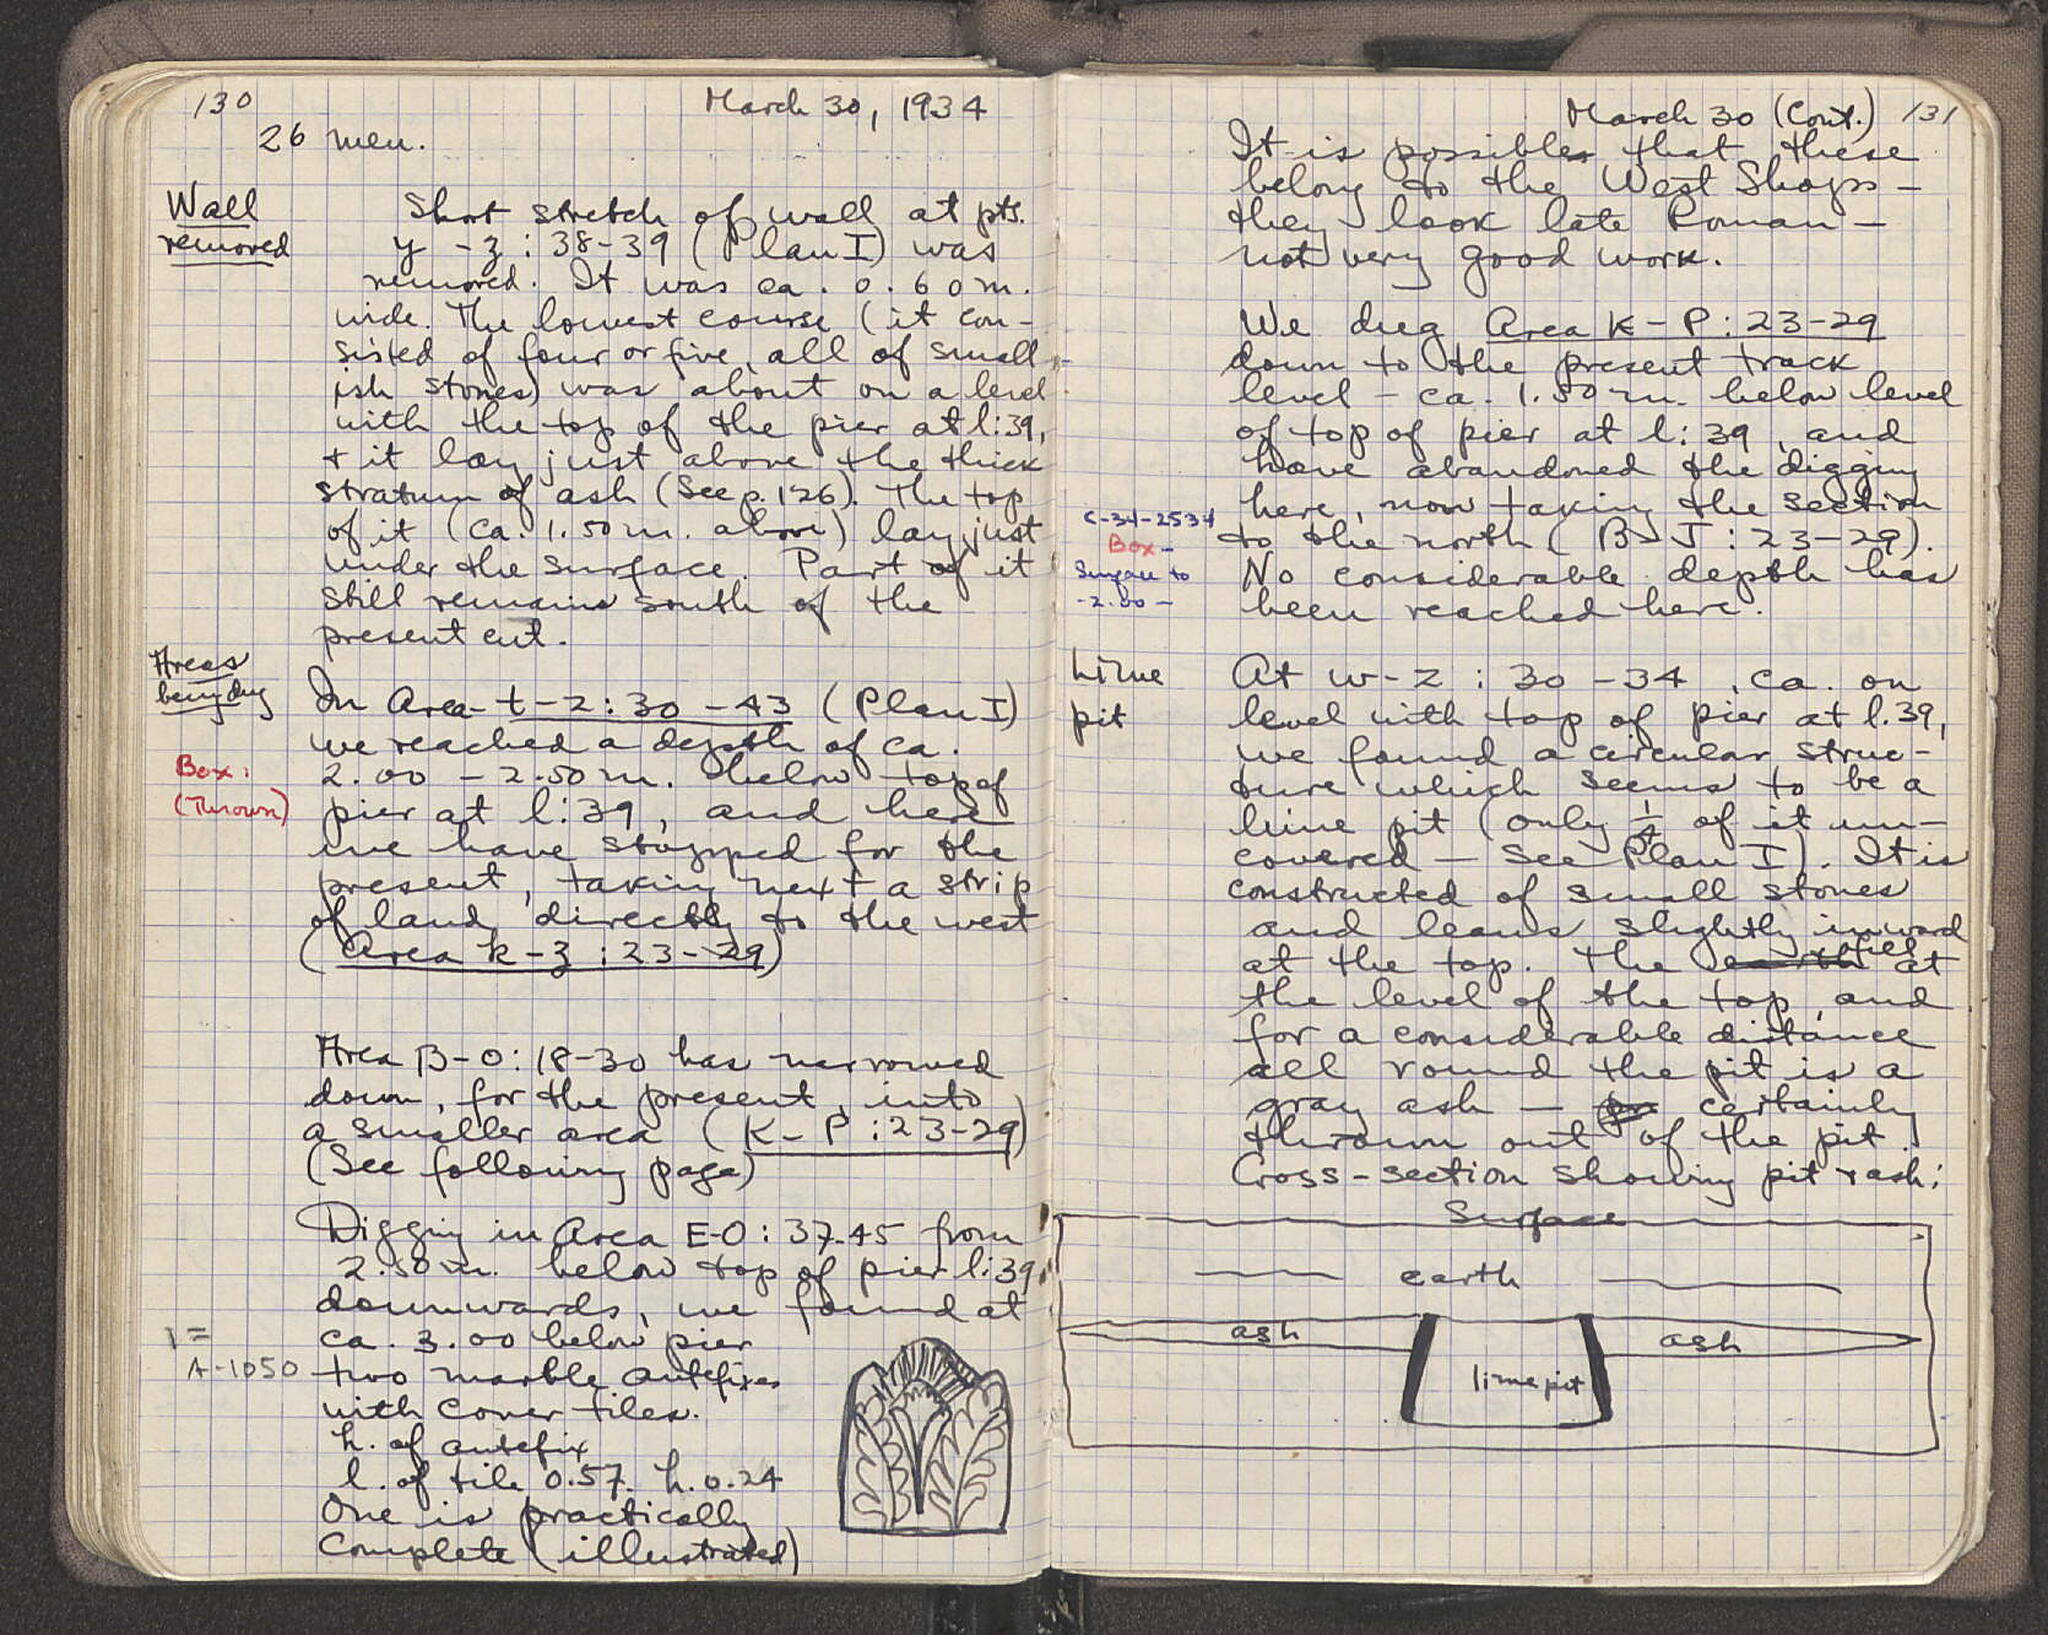 130
March 30, 1934
26 men.
Wall
removed
Short stretch of wall at pts.
y - z : 38-39 (Plan I) was
removed. It was ca. 0.60 m.
wide. The lowest course (it con-
sisted of four or five, all of small-
ish stones) was about on a level
with the top of the pier at l:39,
+ it lay just above the thick
stratum of ash (See p. 126). The top
of it (ca. 1.50 m. above) lay just
under the surface. Part of it
still remains south of the
present cut.
Areas
being dug
In Area t-z : 30-43 (Plan I)
we reached a depth of ca.
Box:
(Thrown)
2.00 - 2.50 m. below top of
pier at l:39, and here
we have stopped for the
present, taking next a strip
of land directly to the west
(Area k-z : 23-29)
Area B-O: 18-30 has narrowed
down, for the present, into
a smaller area (K-P : 23-29)
(See following page)
Digging in Area E-O : 37-45 from
2.50 m. below top of pier l:39
downwards, we found at
ca. 3.00 below pier
1 =
A-1050
two marble antefixes
with cover tiles.
h. of antefix
l. of tile 0.57. h. 0.24
One is practically
complete (illustrated)
March 30 (Cont.) 131
It is possible that these
belong to the West Shops -
they look late Roman -
not very good work.
We dug Area K-P : 23-29
down to the present track
level - ca. 1.50 m. below level
of top of pier at l:39, and
have abandoned the digging
here, now taking the section
C-34-2534
Box -
Surface to
-2.00 -
to the north (B-J : 23-29).
No considerable depth has
been reached here.
Lime
pit
At w-z : 30-34, ca. on
level with top of pier at l.39,
we found a circular struc-
ture which seems to be a
lime pit (only 1/4 of it un-
covered - See Plan I). It is
constructed of small stones
and leans slightly inward
at the top. The earth fill at
the level of the top, and
for a considerable distance
all round the pit is a
gray ash - certainly
thrown out of the pit.
Cross-section showing pit + ash:
Surface
earth
ash
ash
lime pit